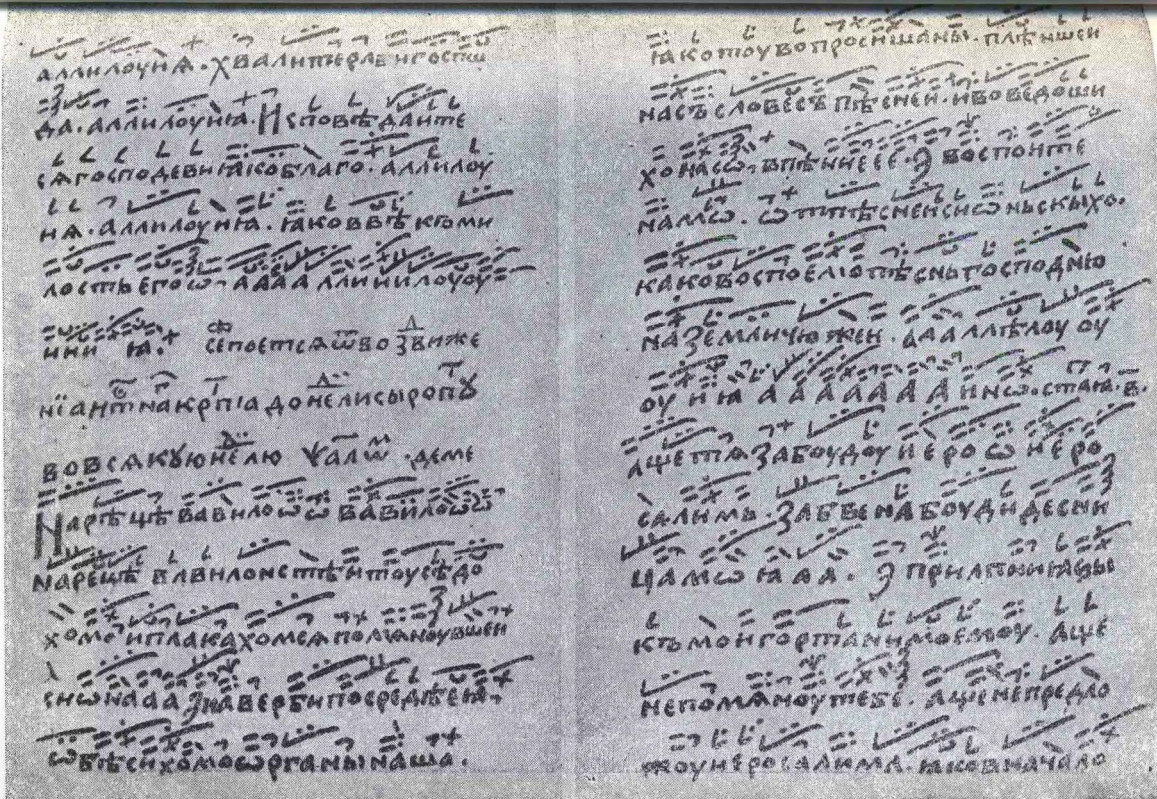 аллилоуиѧ · хвалите раби
да · аллилоуиꙗ · Исповѣдаите
сѧ господеви ꙗко благо · аллилоу
иѧ · аллилоуиꙗ · ꙗко ввѣкъ ми
лость его ѡ аааа ллиииилоуоу
иии ꙗ · се поетсѧ ѿ воздвиже
нїа
во всѧкую нелю
На рѣцѣ вавилоѡѡ вавилоѡѡ
на рецѣ вавилонстѣи тоу сѣдо
хомо и плакахомсѧ помѧноувшеи
сиѡнааа на верби посредѣ еꙗ
ѡбѣсихомо ѡрганы наша ·
ꙗко тоу вопросишаны · плѣншеи
насъ словесъ пѣсней · и во ведоши
хо насѡ впѣниеее · воспоите
намѡ · ѿ пѣсней сиѡньскыхо ·
како воспоемо пѣснь господню
на земли чюжеи · аллѣлоуоу
оу и ꙗ а а а а а а
аще тѧ забоудоу иеро ѡ иеро
салимь · забвена боуди десни
ца моꙗ а а · прилпни ꙗзы
къ мои гортани моемоу · аще
не помѧноу тебе · аще не предло
жоу иеросалима · ꙗко вначало